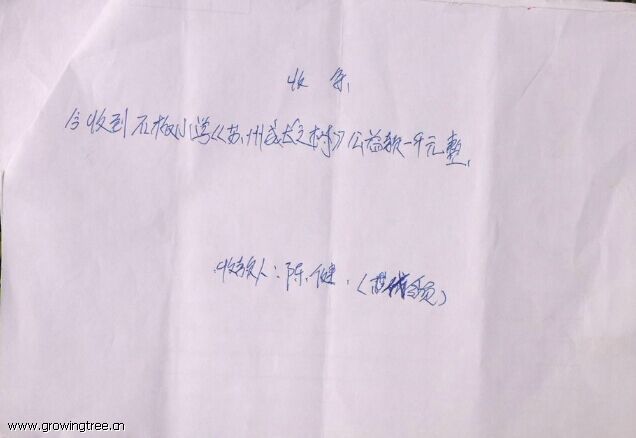 收条
今收到石板小学《苏州成长之树》公益款一千元整.
收款人：陈健.(
www.growingtree.cn